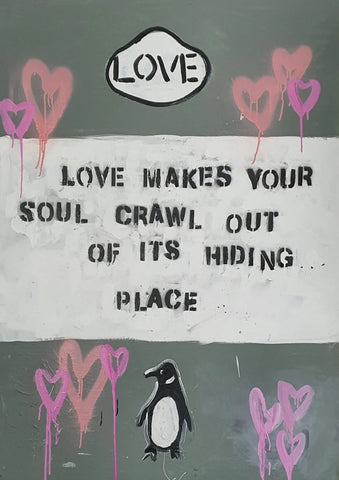 LOVE
LOVE MAKES YOUR
SOUL CRAWL OUT
OF ITS HIDING...
PLACE